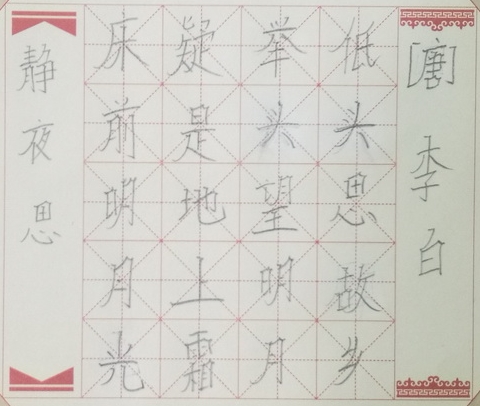 静夜思
床前明月光
疑是地上霜
举头望明月
低头思故乡
[唐]李白